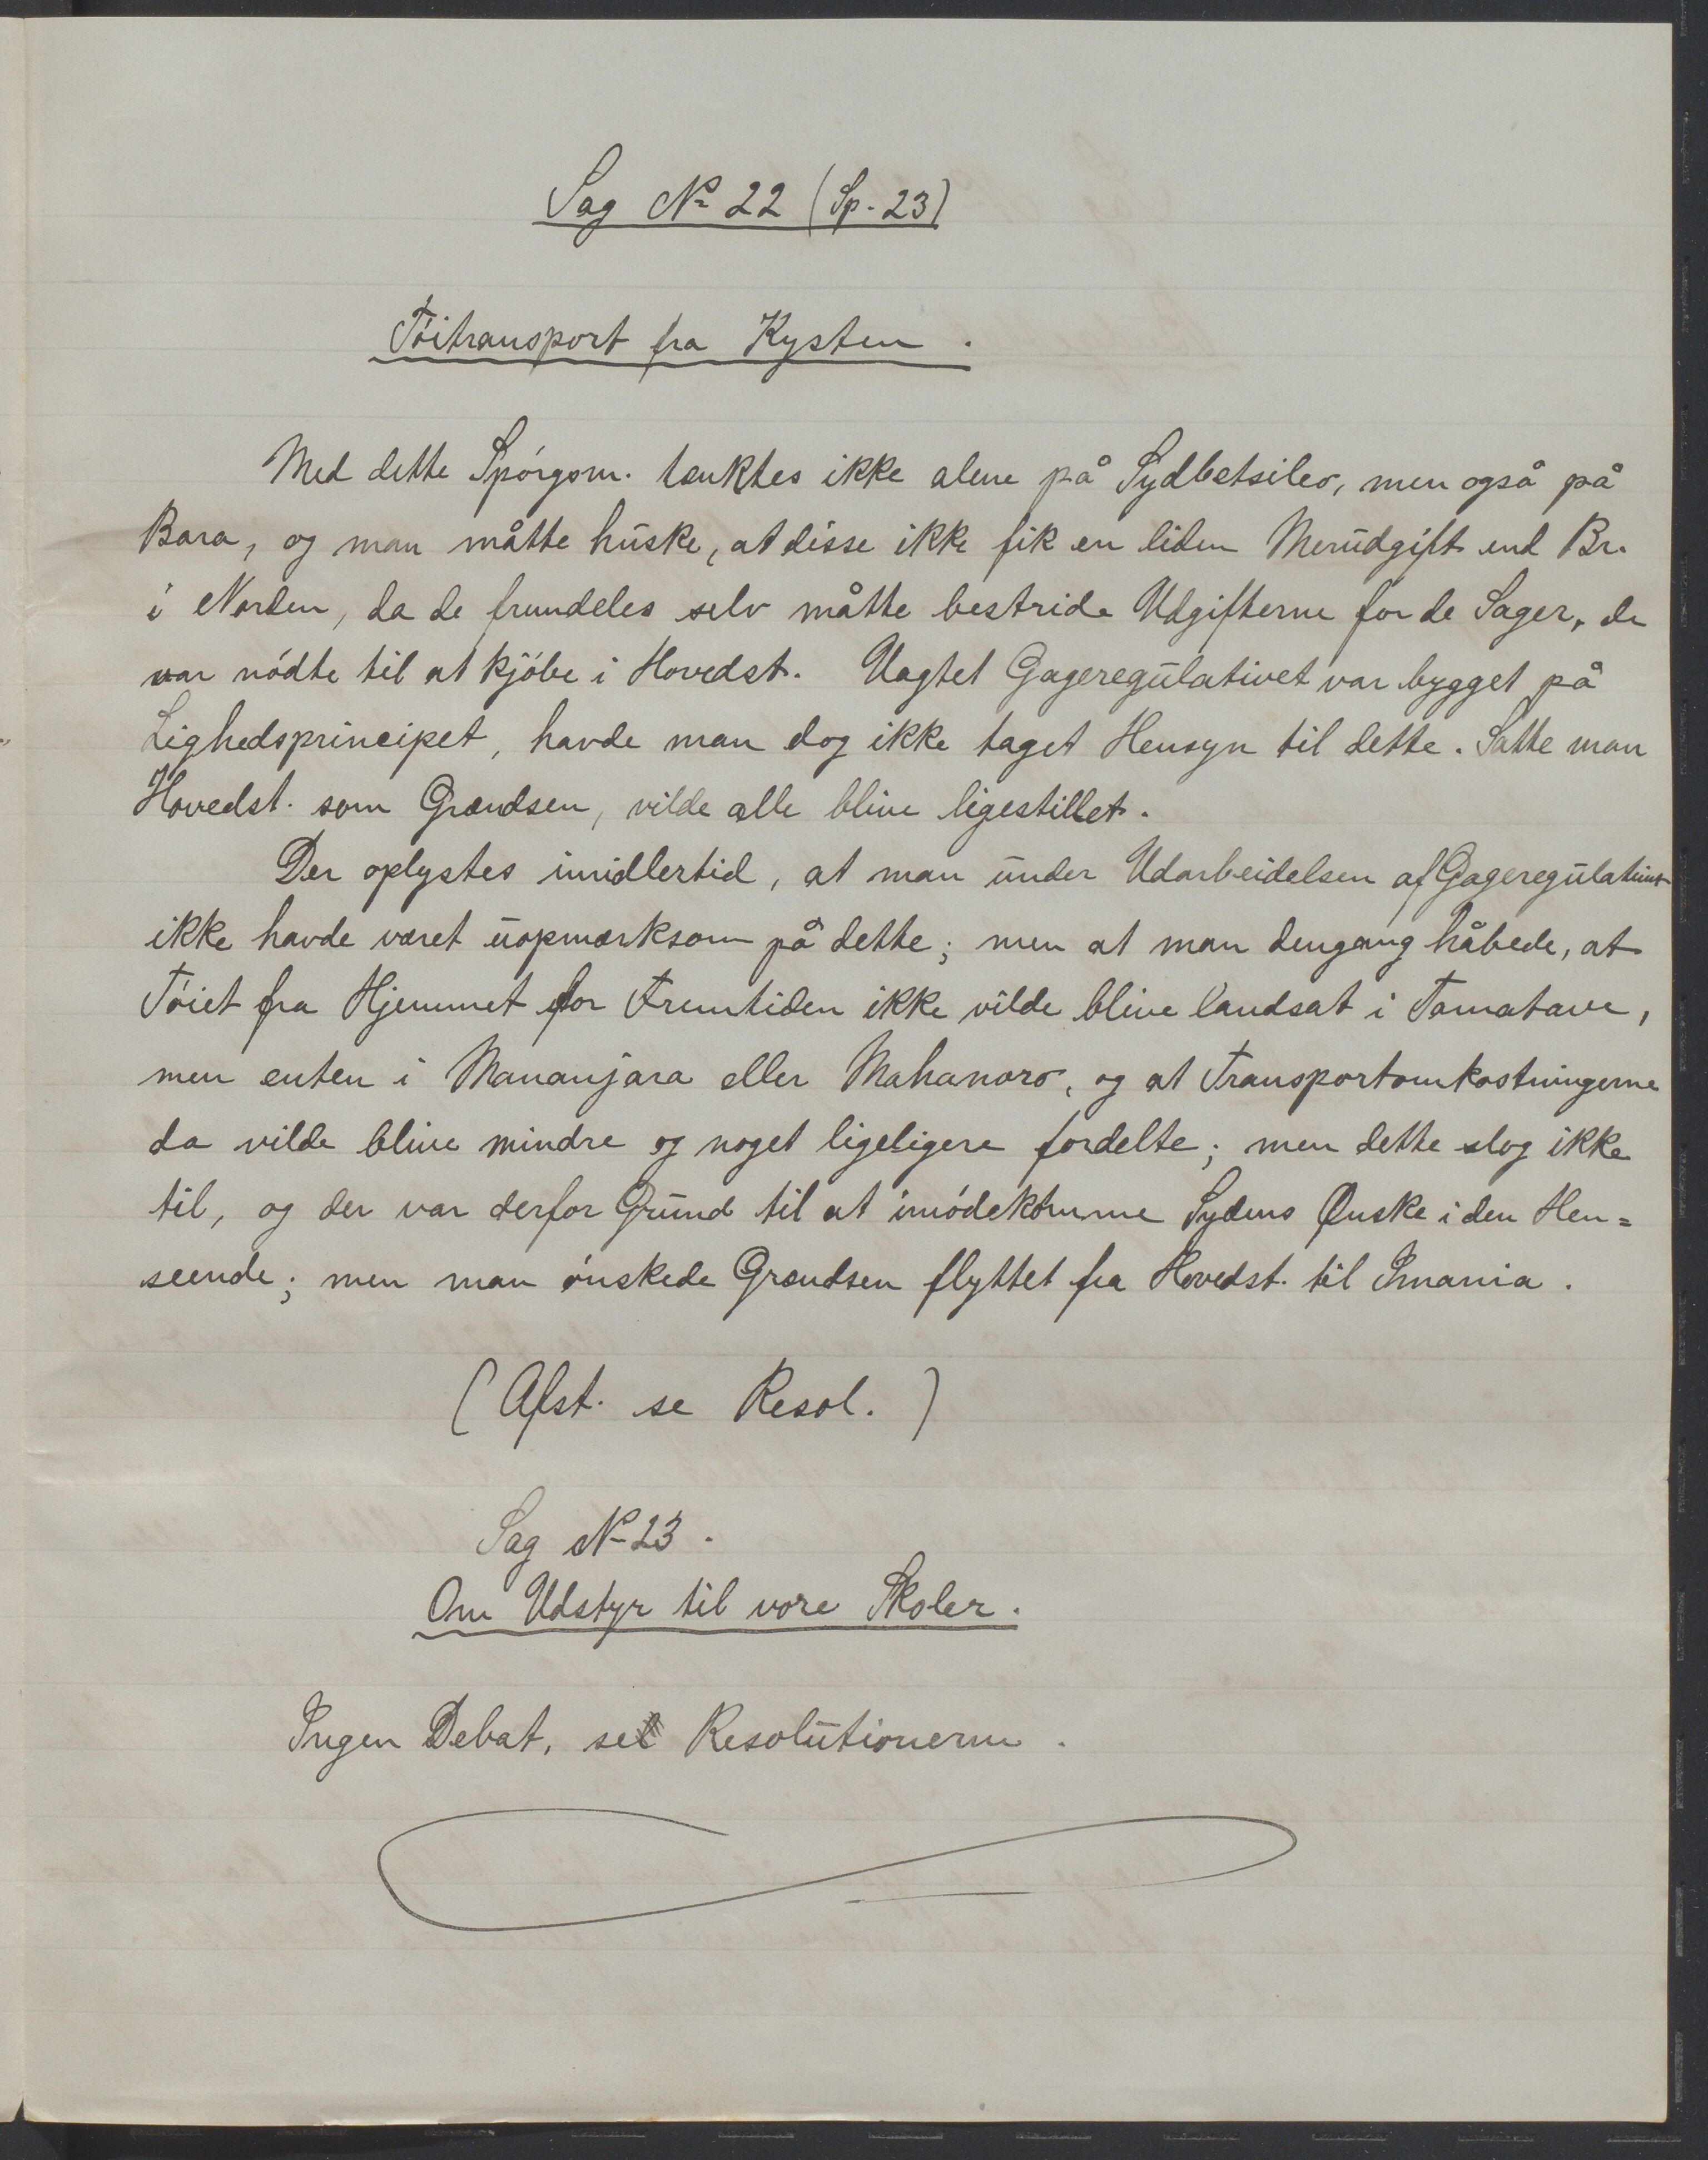 Sag No 22 (Sp. 23)
Tóitransport fra Kysten.
Med dette Spórgsm. tænktes ikke alene på Sydbetsileo, men også på
Bara, og man måtte huske, at disse ikke fik en liden Merudgift end Br.
i Norden, da de fremdeles selv måtte bestride Udgifterne for de Sager, de
var nódte til at kjóbe i Hovedst. Uagtet Gageregulativet var bygget på
Lighedsprincipet, havde man dog ikke taget Hensyn til dette. Satte man
Hovedst. som Grændsen, vilde alle blive ligestillet.
Der oplystes imidlertid, at man under Udarbeidelsen af Gageregulativet
ikke havde været uopmærksom på dette; men at man dengang håbede, at
Tóiet fra Hjemmet for Fremtiden ikke vilde blive landsat i Tamatave,
men enten i Mananjara eller Mahanoro, og at Transportomkostningerne
da vilde blive mindre og noget ligeligere fordelte; men dette slog ikke
til, og der var derfor Grund til at imódekomme Sydens Ønske i den Hen=
seende; men man ónskede Grændsen flyttet fra Hovedst. til Imania.
(Afst. se Resol.)
Sag No 23.
Om Udstyr til vore Skoler.
Ingen Debat, se Resolutionerne.